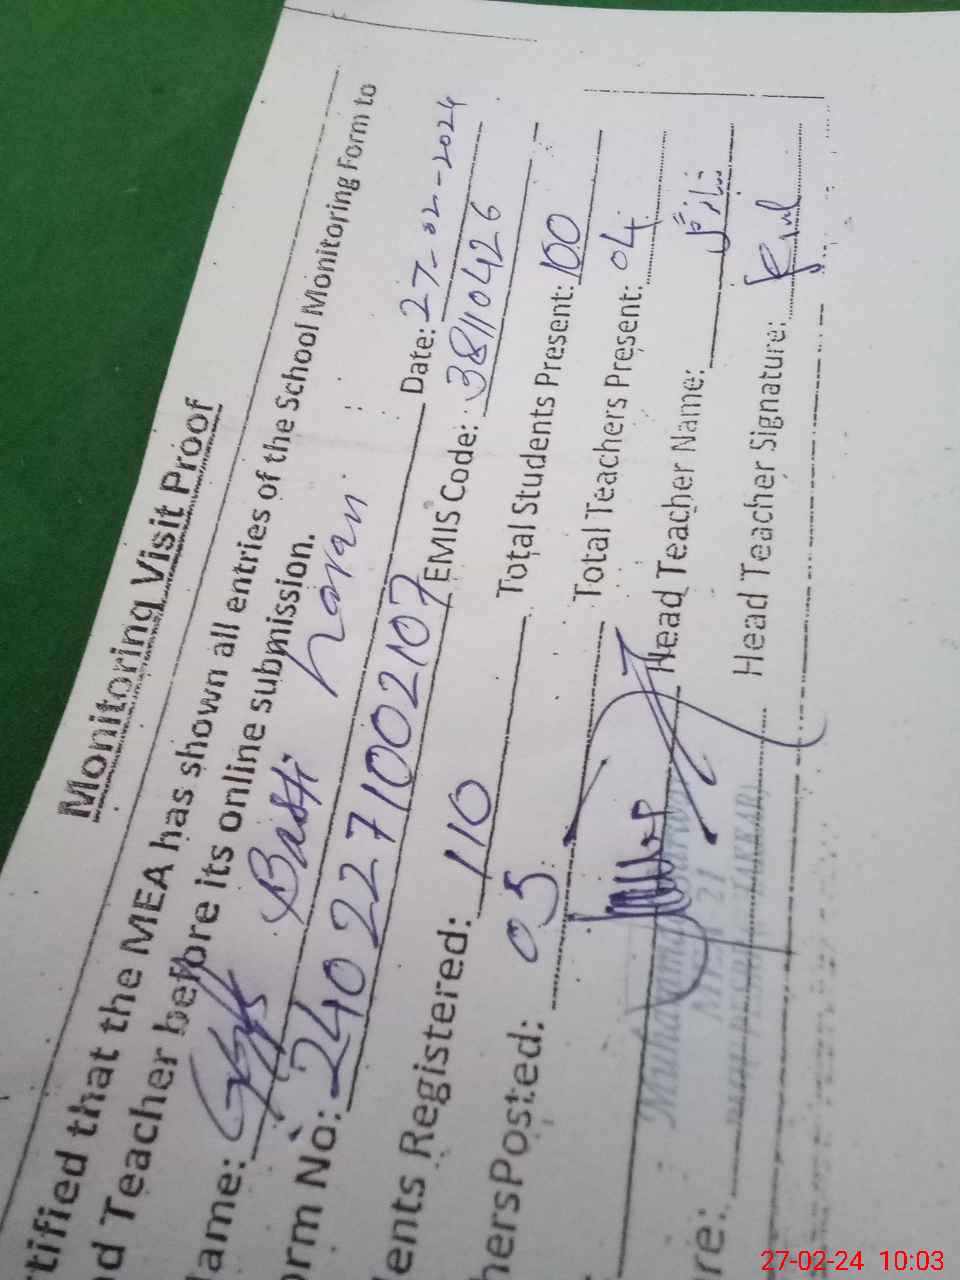 Monitoring Visit Proof
rtified that the MEA has shown all entries of the School Monitoring Form to
d Teacher before its online submission.
Name: GGPS Basti Date: 27-02-2024
orm No: 2402271002107 EMIS Code: 38110426
dents Registered: 110 Total Students Present: 100
hersPosted: 05 Total Teachers Present: 04
Head Teacher Name:
re: Head Teacher Signature:
Muhammad
MEA 21
27-02-24 10:03